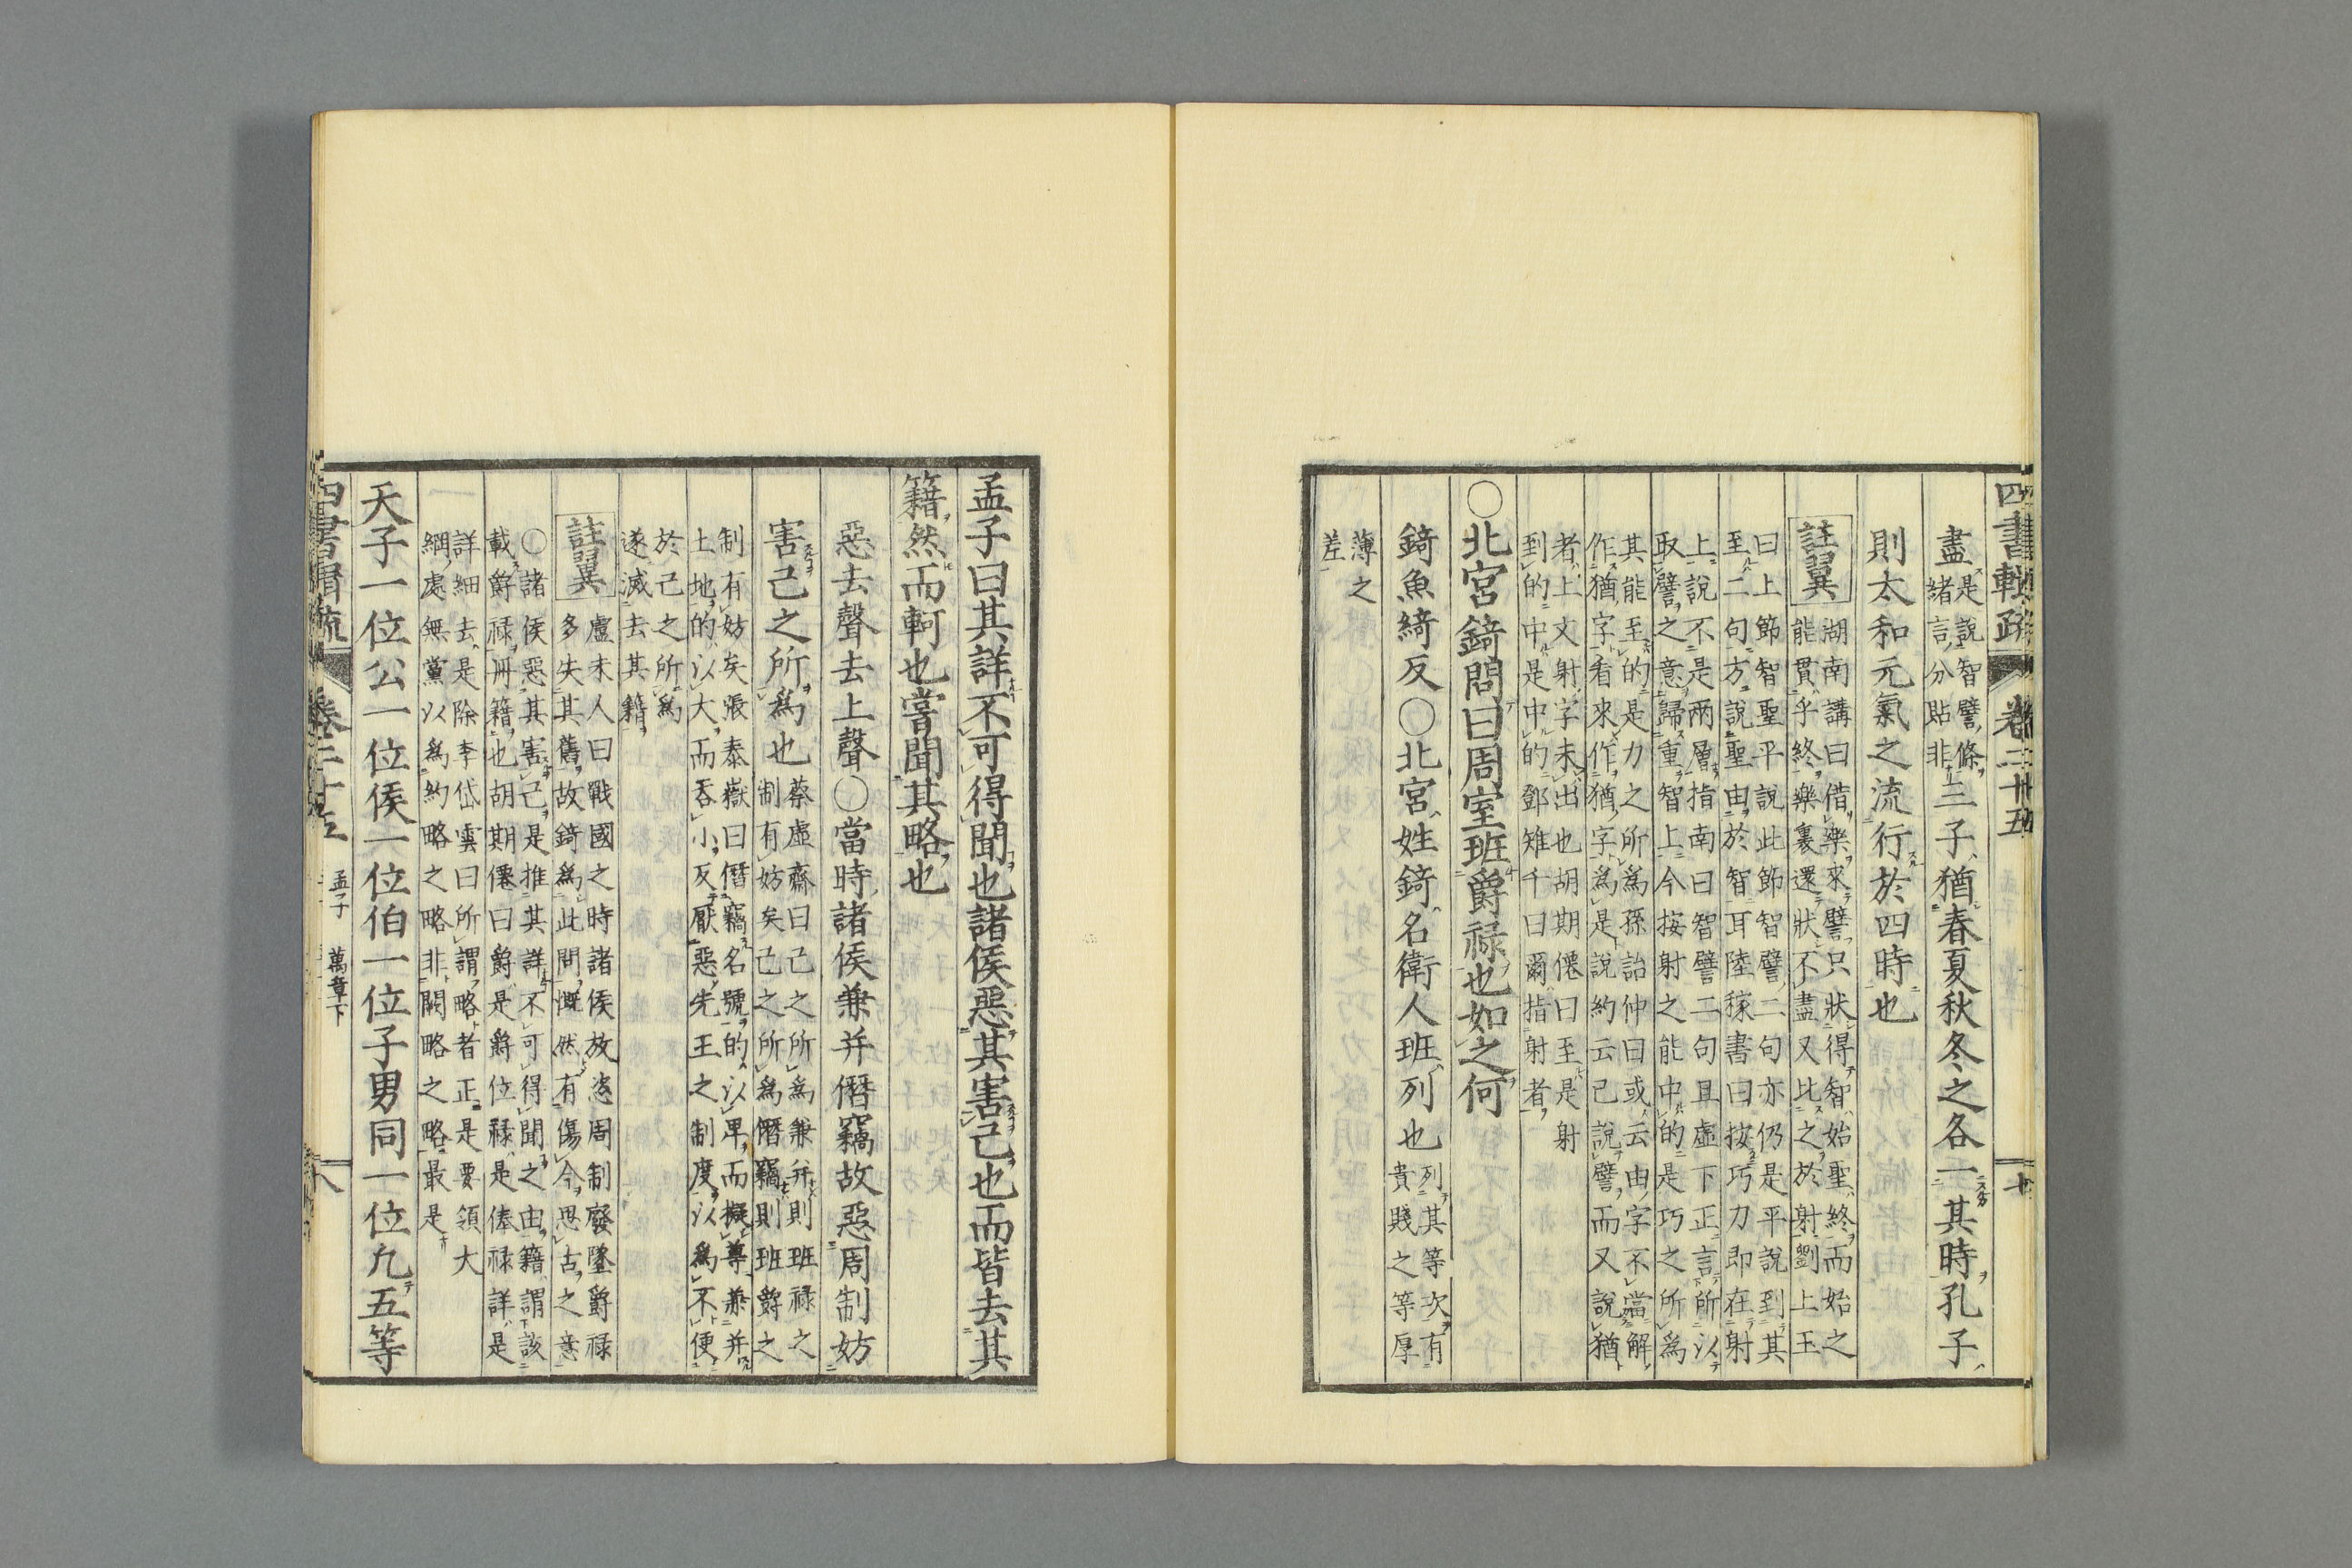 盡是說智譬條諸言分貼非三子猶春夏秋冬之各一其時孔子
則太和元氣之流行於四時也
註翼 湖南講曰借樂來譬只狀得智始聖終而始之
能貫乎終樂裏還狀不盡又比之於射劉上玉
曰上節智聖平說此節智譬二句亦仍是平說到其
至二句方說聖由於智耳陸稼書曰按巧力即在射
上說不是兩層指南曰智譬二句且虛下正言所以
取譬之意歸重智上今按射之能中的是巧之所爲
其能至的是力之所爲孫詒仲曰或云由字不當解
作猶字看來作猶字爲是說約云已說譬而又說猶
者上文射字未出也胡期僊曰至是射
到的中是中的鄧雉千曰爾指射者
○北宮錡問曰周室班爵祿也如之何
錡魚綺反○北宮姓錡名衛人班列也列其等次有
貴賤之等厚
薄之
差
孟子曰其詳不可得聞也諸侯惡其害己也而皆去其
籍然而軻也嘗聞其略也
惡去聲去上聲○當時諸侯兼并僭竊故惡周制妨
害己之所爲也蔡虛齋曰己之所爲兼并則班祿之
制有妨矣己之所爲僭竊則班爵之
制有妨矣張泰嶽曰僭竊名號的以卑而擬尊兼并
土地的以大而吞小反厭惡先王之制度以爲不便
於己之所爲
遂滅去其籍
註翼 盧未人曰戰國之時諸侯放恣周制廢墜爵祿
多失其舊故錡爲此問慨然有傷今思古之意
○諸侯惡其害己是推其詳不可得聞之由籍謂該
載爵祿冊籍也胡期僊曰爵是爵位祿是俸祿詳是
詳細去是除李岱雲曰所謂略者正是要領大
綱處無黨以爲約略之略非闕略之略最是
天子一位公一位侯一位伯一位子男同一位凡五等
四書輯疏 卷二十五 孟子 萬章下